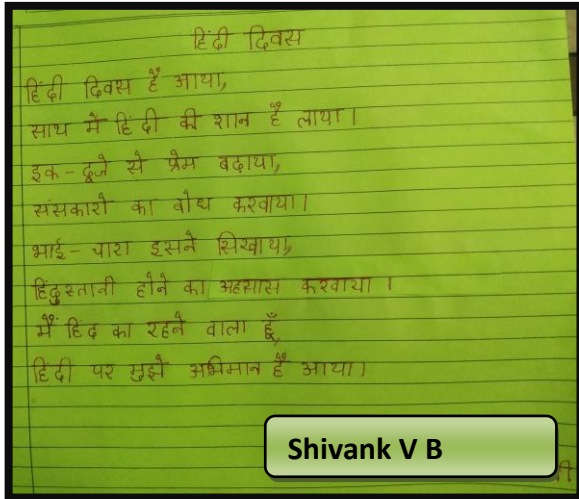 हिंदी दिवस
हिंदी दिवस है आया,
साथ में हिंदी की शान है लाया।
इक-दूजे से प्रेम बढ़ाया,
संसकारो का बोध करवाया।
भाई-चारा इसने सिखाया,
हिंदुस्तानी होने का अहसास करवाया ।
मैं हिंद का रहने वाला हूँ,
हिंदी पर मुझे अभिमान है आया।
Shivank V B